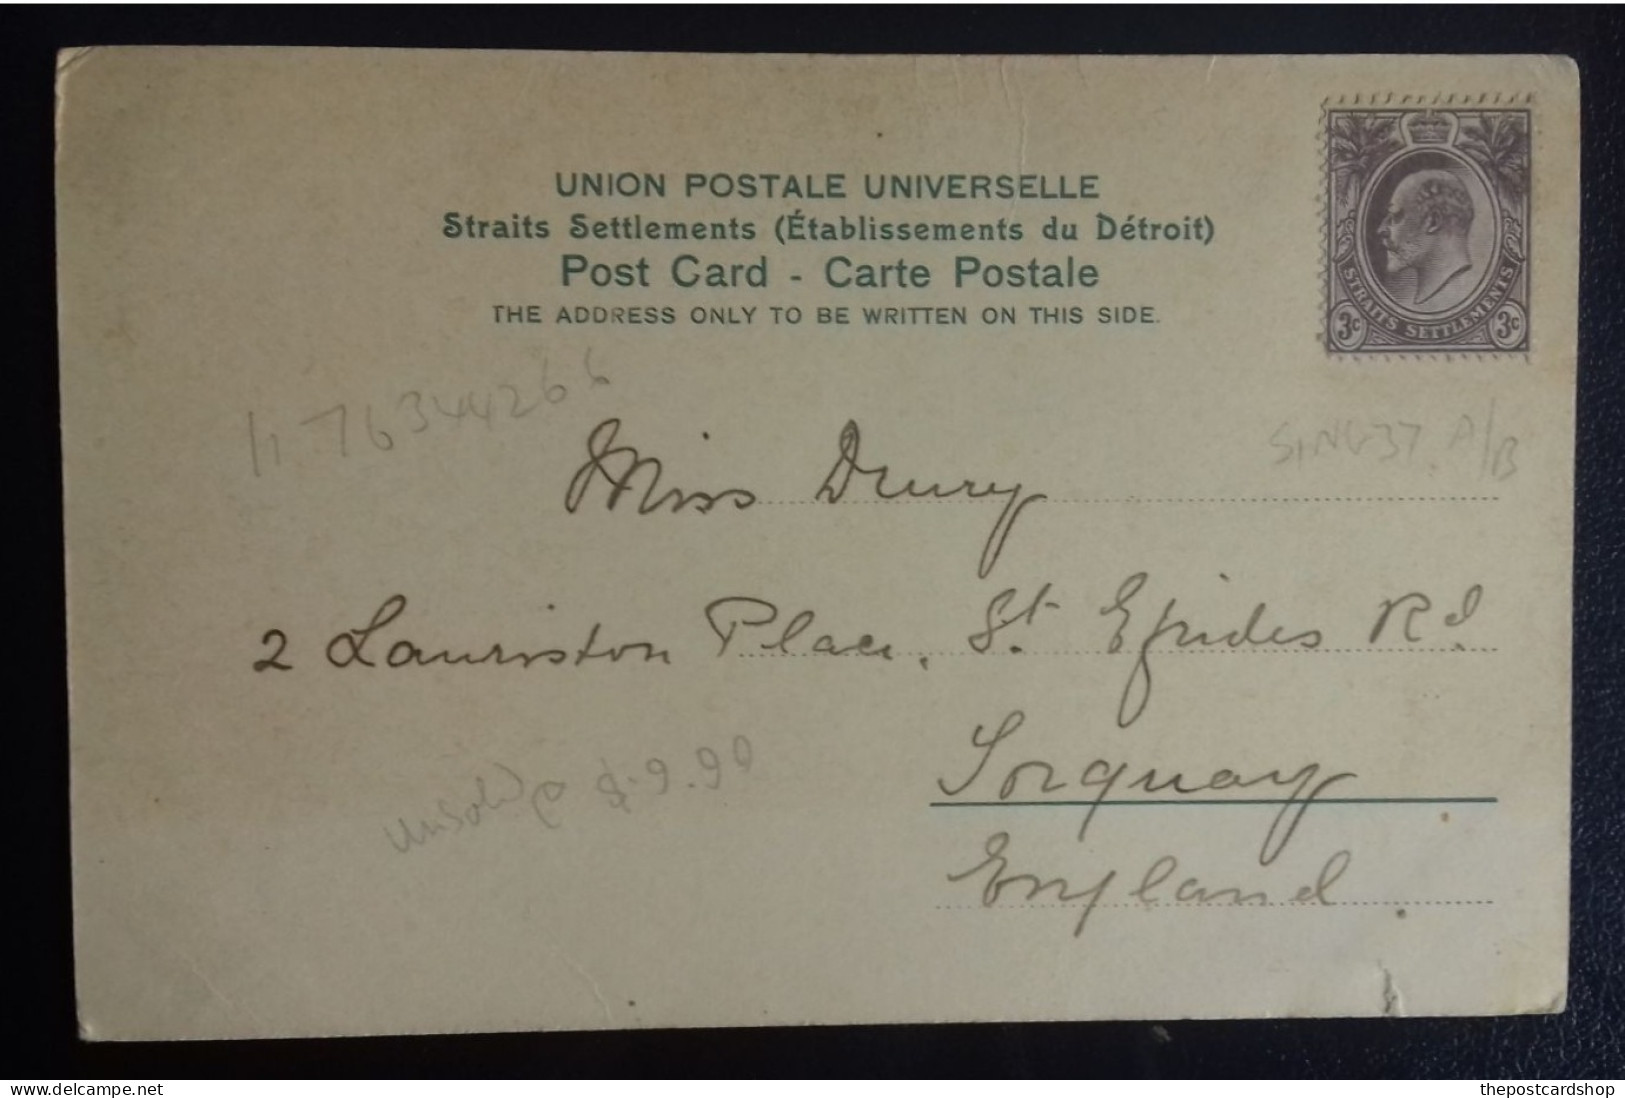 UNION POSTALE UNIVERSELLE
Straits Settlements (Établissements du Détroit)
Post Card - Carte Postale
THE ADDRESS ONLY TO BE WRITTEN ON THIS SIDE.
STRAITS SETTLEMENTS
3c 3c
7634426
SING37. A/B
Miss Drury
2 Lauriston Place, St. Efrides Rd.
Torquay
England.
unsold @ $.9.90
www.delcampe.net
thepostcardshop